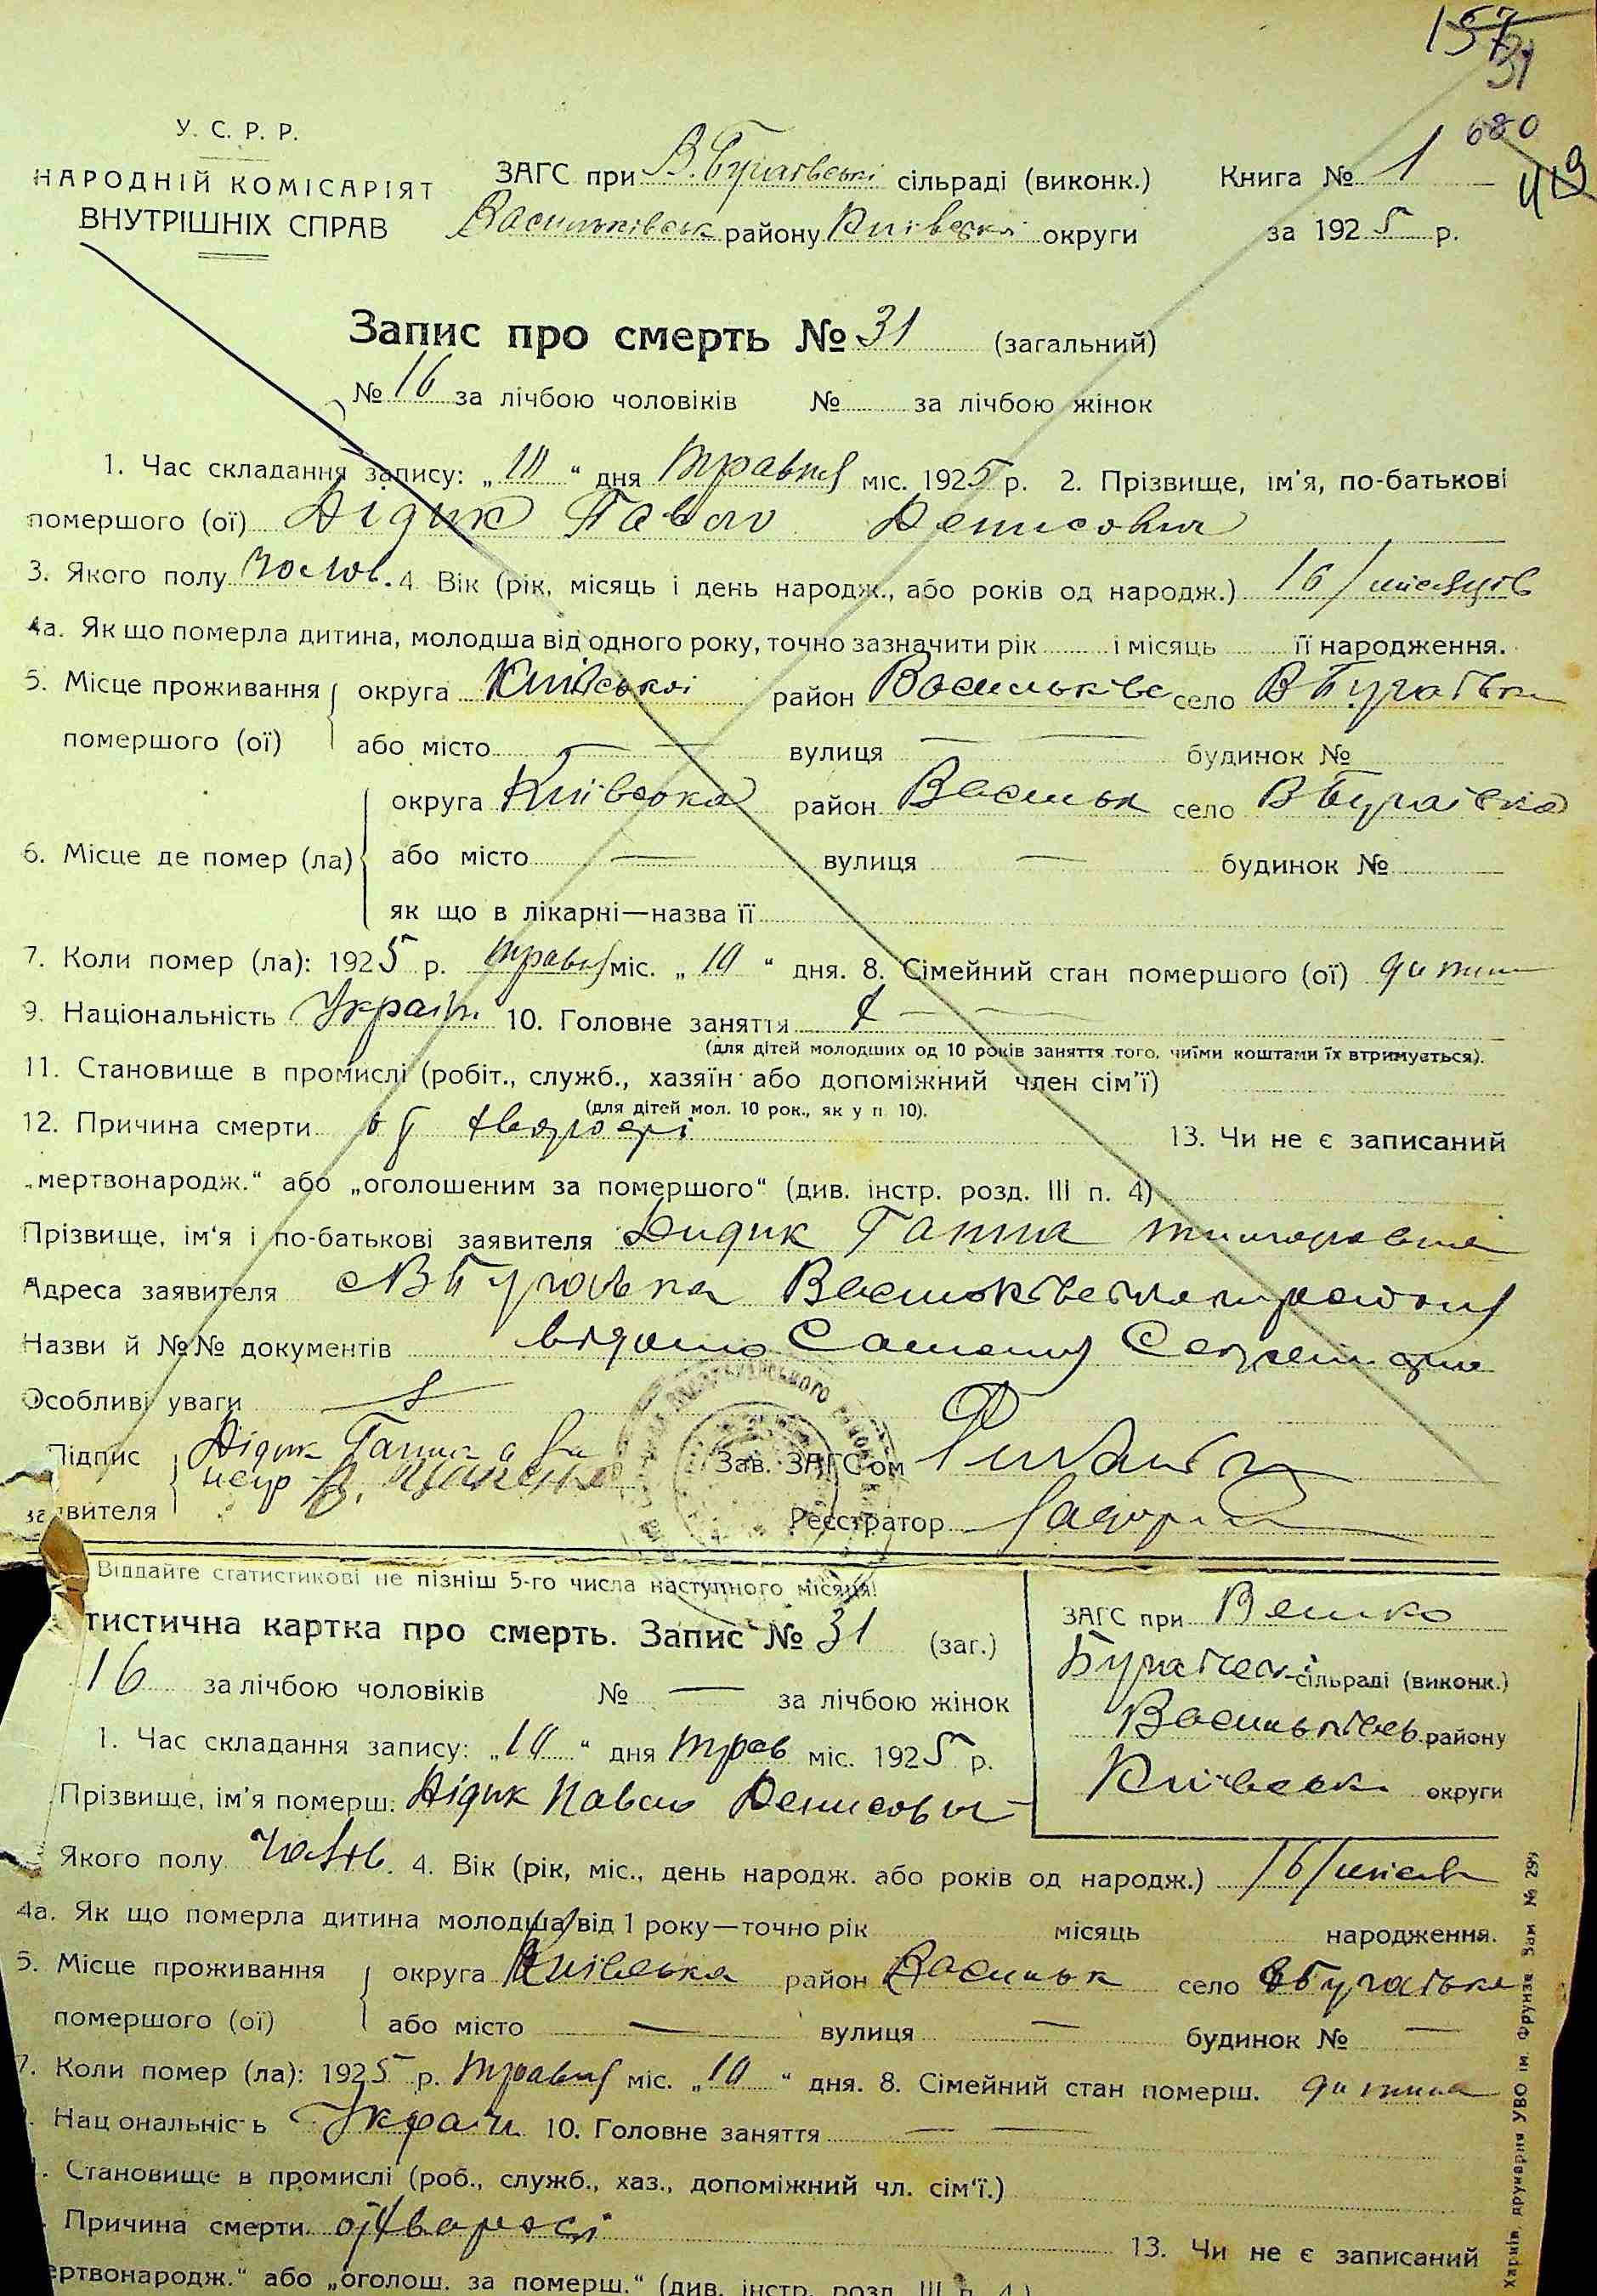 157
31
680
У. С. Р. Р.
НАРОДНІЙ КОМІСАРІЯТ
ВНУТРІШНІХ СПРАВ
ЗАГС при В. Бугаївські сільраді (виконк.)
Васильківськ району Київської округи
Книга № 1
за 1925 р.
Запис про смерть № 31 (загальний)
№ 16 за лічбою чоловіків № за лічбою жінок
1. Час складання запису: „10“ дня травня міс. 1925 р. 2. Прізвище, ім'я, по-батькові
помершого (ої) Дідик Павло Денисович
3. Якого полу чолов. 4. Вік (рік, місяць і день народж., або років од народж.) 16/місяців
4а. Як що померла дитина, молодша від одного року, точно зазначити рік і місяць її народження.
5. Місце проживання округа Київської район Васильківс село В Бугаївка
помершого (ої) або місто — — вулиця — — будинок №
округа Київська район Васильк село В Бугаївка
6. Місце де помер (ла) або місто — вулиця — будинок №
як що в лікарні—назва її
7. Коли помер (ла): 1925 р. травня міс. „10“ дня. 8. Сімейний стан помершого (ої) дитина
9. Національність Україн. 10. Головне заняття — —
(для дітей молодших од 10 років заняття того, чиїми коштами їх втримується).
11. Становище в промислі (робіт., служб., хазяїн або допоміжний член сім'ї)
(для дітей мол. 10 рок., як у п 10).
12. Причина смерти 13. Чи не є записаний
„мертвонародж.“ або „оголошеним за помершого“ (див. інстр. розд. III п. 4)
Прізвище, ім'я і по-батькові заявителя Дидик Ганна
Адреса заявителя с В Бугаївка району
Назви й №№ документів відомо
Особливі уваги
Підпис Дідик Ганна а за
неур
заявителя
Зав. ЗАГС'ом
Реєстратор
Віддайте статистикові не пізніш 5-го числа наступного місяця!
тистична картка про смерть. Запис № 31 (заг.)
16 за лічбою чоловіків № — за лічбою жінок
ЗАГС при Велико
Бугаївські сільраді (виконк.)
Васильківськ району
Київськ округи
1. Час складання запису: „10“ дня трав міс. 1925 р.
Прізвище, ім'я померш. Дідик Павло Денисович
Якого полу чолов. 4. Вік (рік, міс., день народж. або років од народж.) 16/місяв
4а. Як що померла дитина молодша від 1 року—точно рік місяць народження.
5. Місце проживання округа Київська район Васильк село В Бугаївка
помершого (ої) або місто — вулиця — будинок № —
7. Коли помер (ла): 1925 р. травня міс. „10“ дня. 8. Сімейний стан померш. дитина
Нац ональніс ь Україн 10. Головне заняття — —
Становище в промислі (роб., служб., хаз., допоміжний чл. сім'ї.)
Причина смерти. 13. Чи не є записаний
ертвонародж.“ або „оголош. за померш.“ (див. інстр. розд. III п. 4)
Харків, друкарня УВО ім. Фрунзе Зам № 299